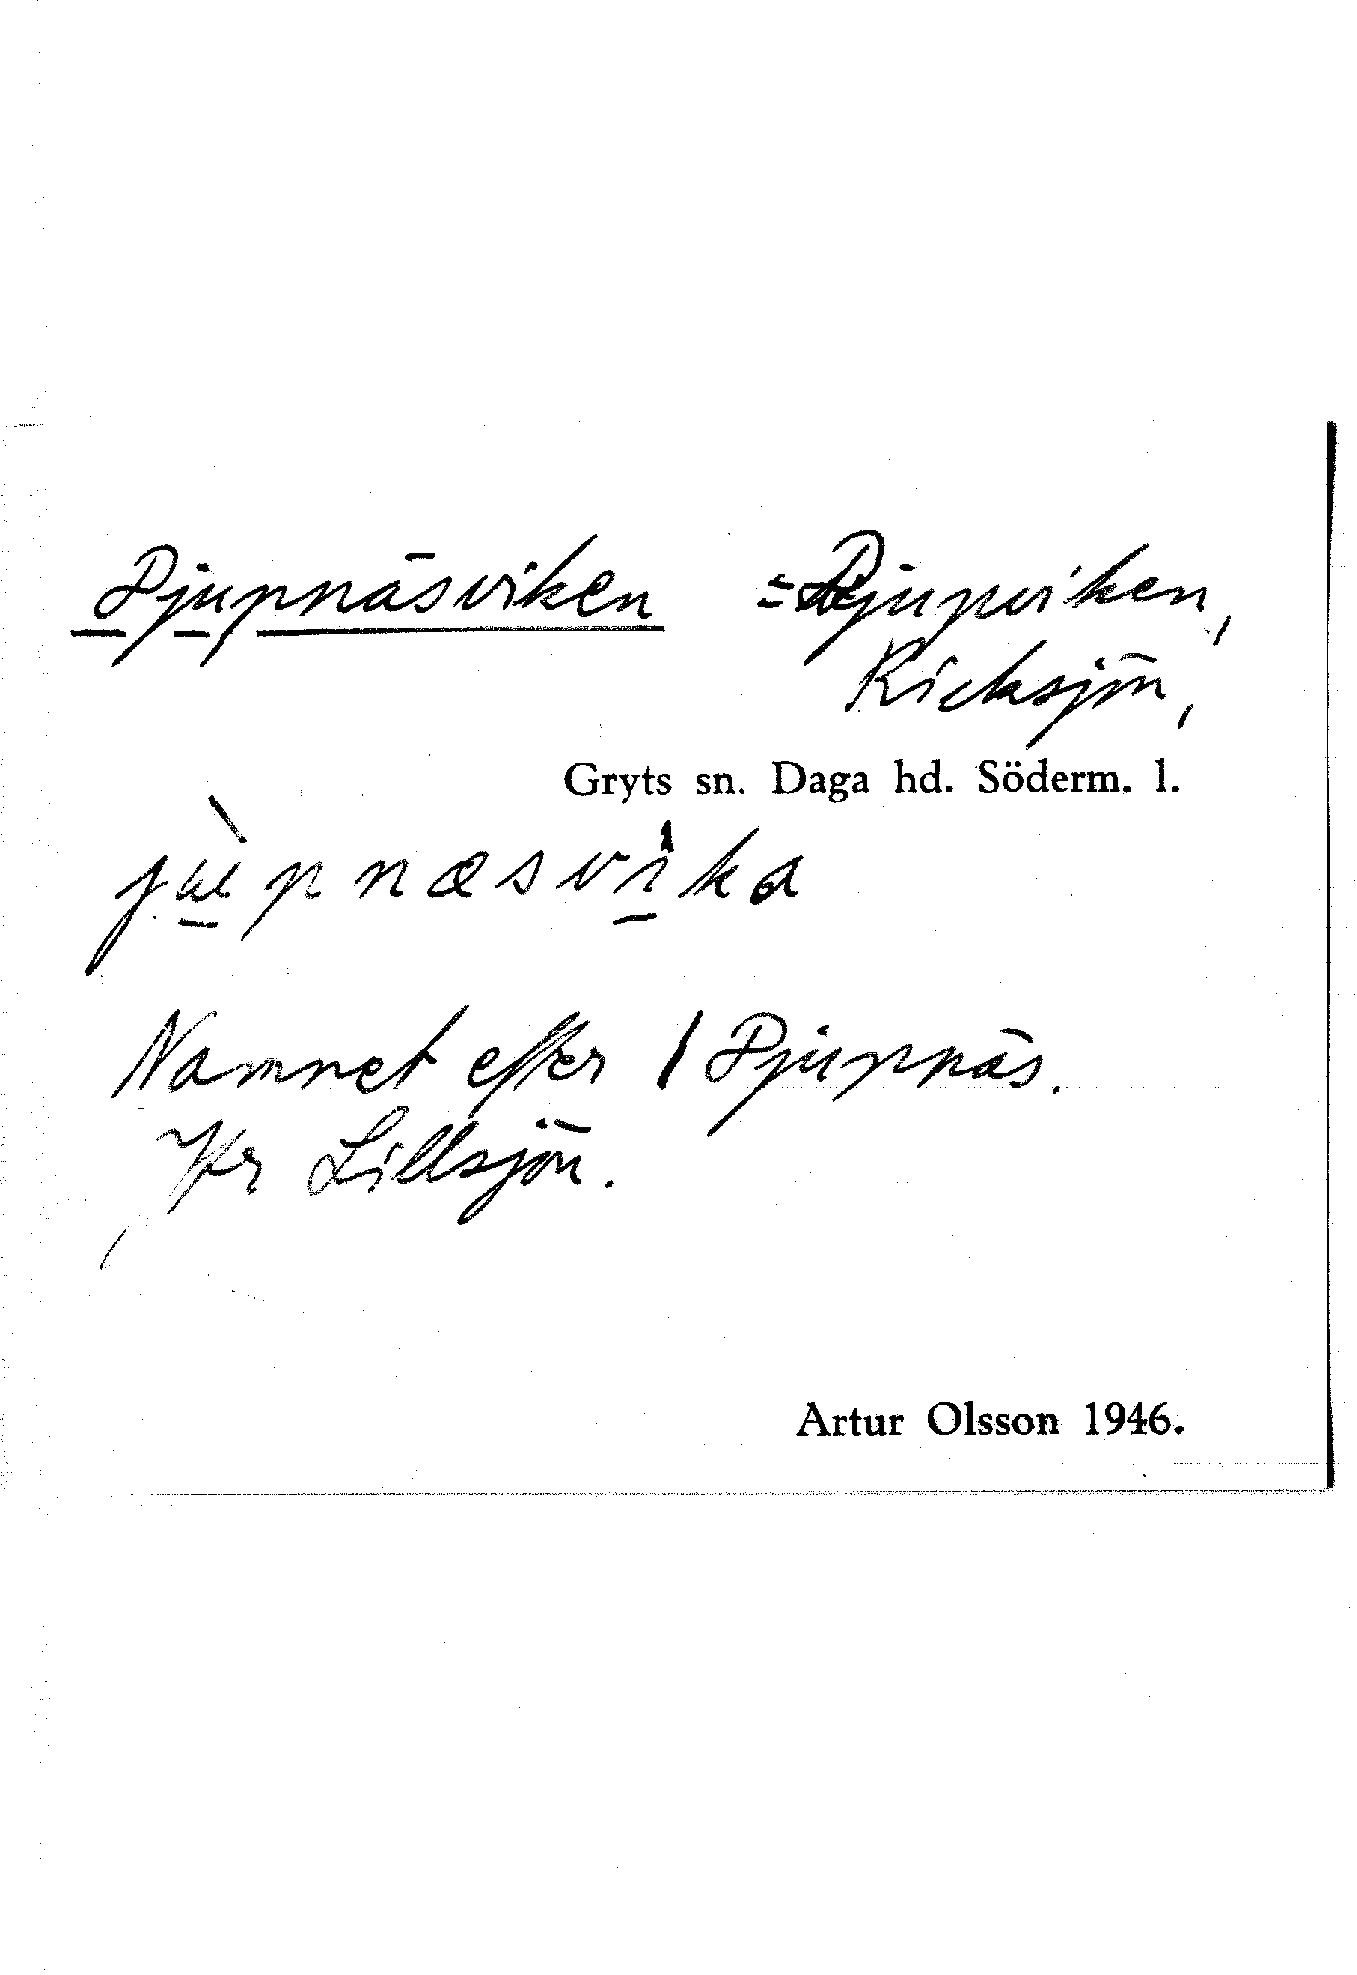 Djupnäsviken = Djupviken,
Ricksjön,
Gryts sn. Daga hd. Söderm. l.
jùpnæsvika
Namnet efter 1 Djupnäs.
Jfr Lillsjön.
Artur Olsson 1946.